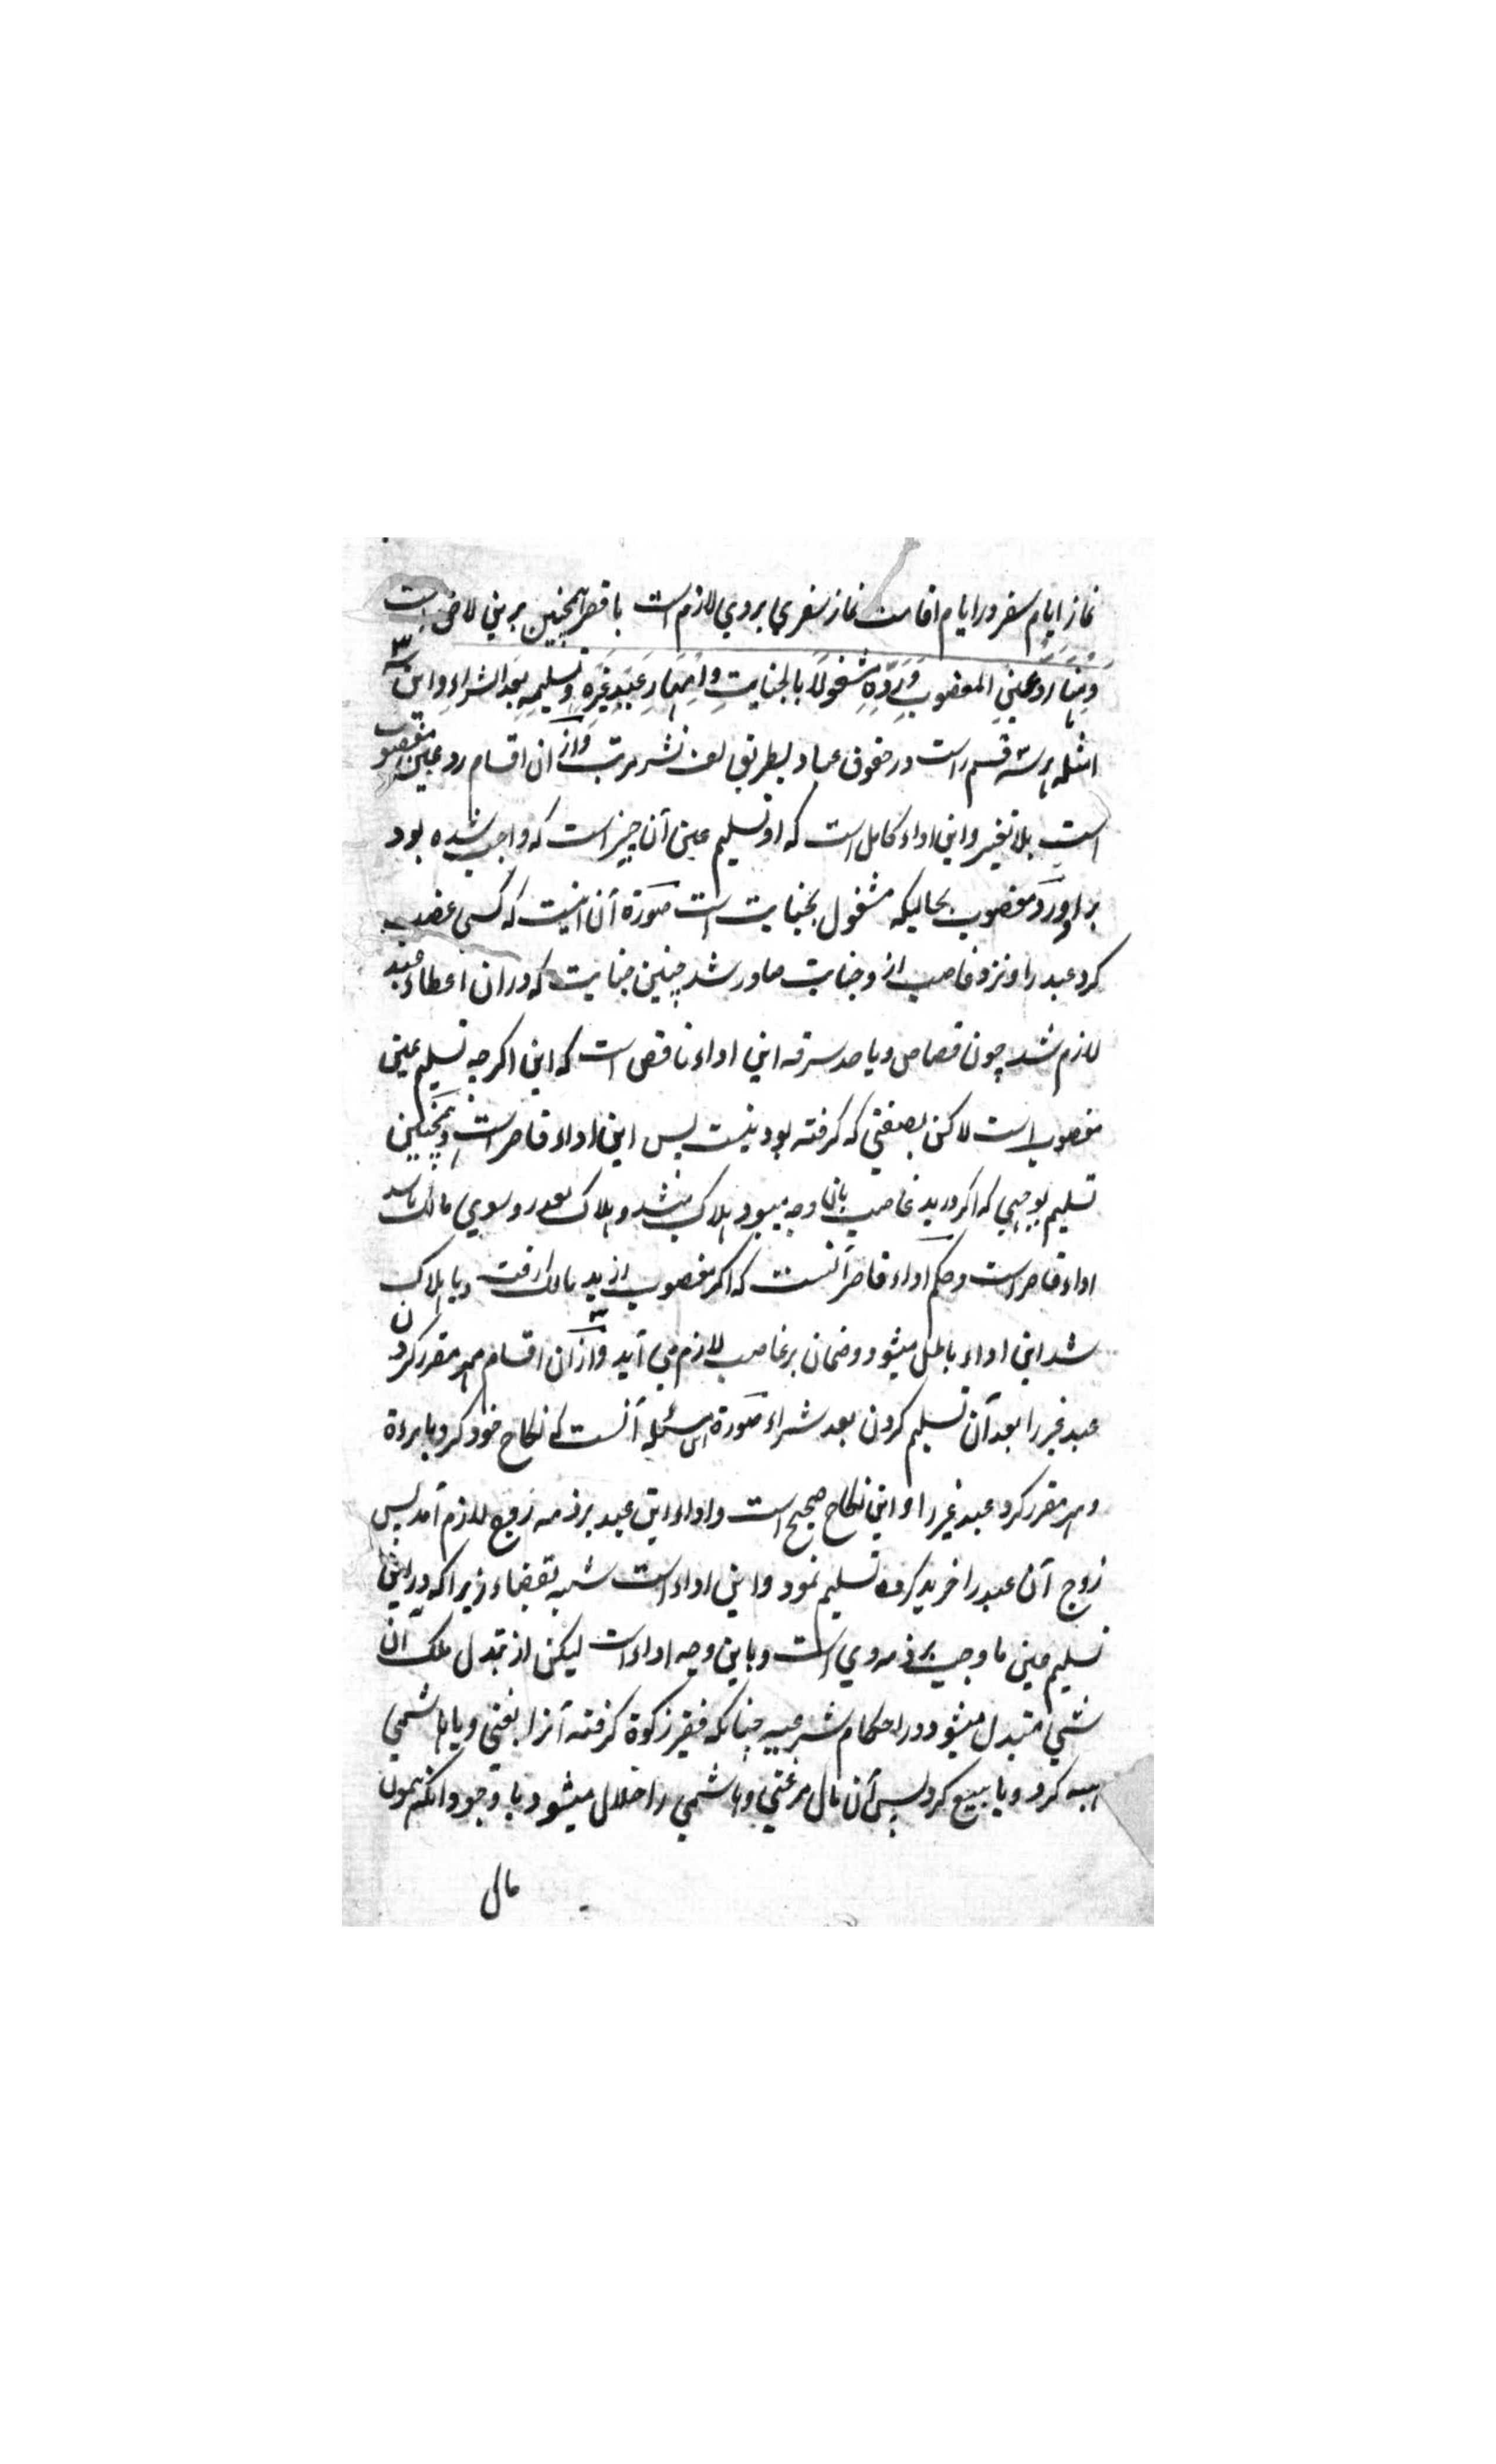 نماز ایام سفر در ایام اقامت نماز سفری بروی لازم است باقصر همچنین برینی لاحق است
ومنها رد عین المغصوب وَرَدّه مشغولًا بالجنایتِ واِمهارِ عَبدِ غَیرِه وتسلیمه بعد الشراء واین سه
امثله هر سه قسم است در حقوق عباد بطریق لف نشر مرتب واز ان اقسام رد عین مغصوب
است بلا تغیر واین اداء کامل است که او تسلیم عین آن چیز است که واجب شده بود
براو ورد مغصوب بحالیکه مشغول بجنایت است صورة آن اینست که کسی غصب
کرد عبد را ونزد غاصب از و جنایت صادر شد چنین جنایت که دران اعطاء عبد
لازم شد چون قصاص ویا حد سرقه این اداء ناقص است که این اکرچه تسلیم عین
مغصوب است لاکن بصفتی که کرفته بود نیست پس این اداء قاصر است وهمچنین
تسلیم بوجهی که اکر در ید غاصب بان وجه میبود هلاک میشد و هلاک بعد رد سوی مالک باشد
اداء قاصر است وحکم اداء قاصر آنست که اکر مغصوب از ید مالک رفت ویا هلاک
شد این اداء باطل میشود وضمان بر غاصب لازم می آید واز ان اقسام مهر مقرر کردن
عبد غیر را بعد آن تسلیم کردن بعد شراء صورة این مسئله آنست که نکاح خود کرد با مرءة
ومهر مقرر کرد عبد غیر را واین نکاح صحیح است واداء این عبد بر ذمه زوج لازم آمد پس
زوج آن عبد را خرید کرده تسلیم نمود واین اداء است شبه بقضاء زیراکه در این
تسلیم عین ما وجب بر ذمه وی است وباین وجه اداء است لیکن از تبدل ملک آن
شی متبدل میشود در احکام شرعیه چنانکه فقیر زکوة کرفته آنرا بغنی ویا هاشمی
هبه کرد ویا بیع کرد پس آن مال مر غنی وهاشمی را حلال میشود با وجود انکه همون
مال